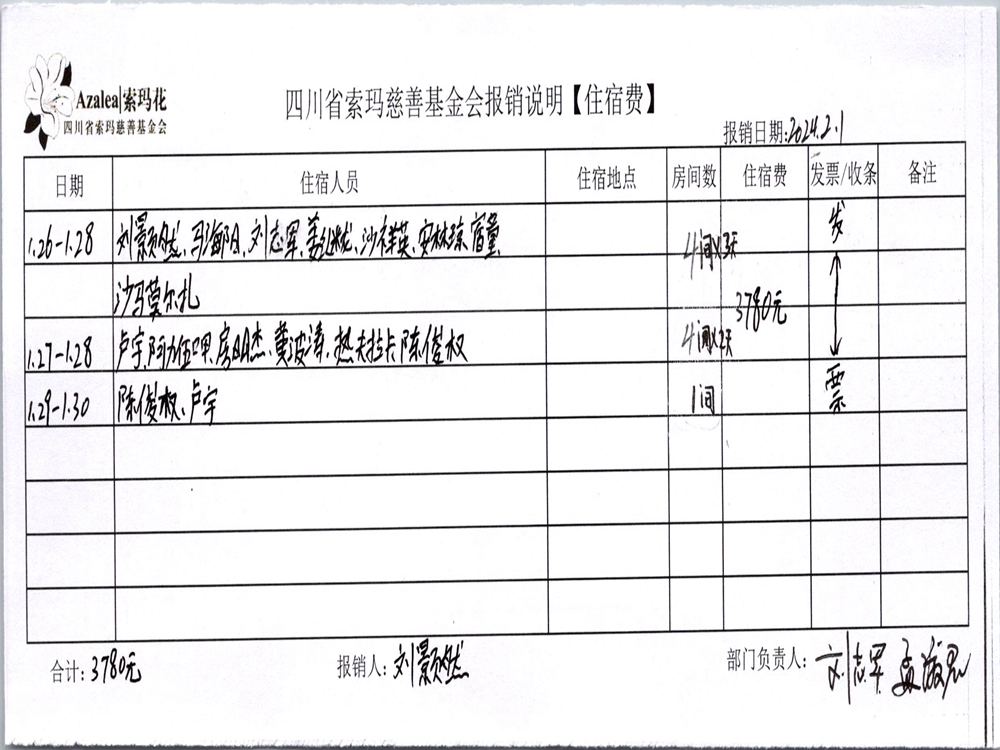 Azalea|索玛花
四川省索玛慈善基金会
四川省索玛慈善基金会报销说明【住宿费】
报销日期:2024.2.1
日期 住宿人员 住宿地点 房间数 住宿费 发票/收条 备注
1.26-1.28 刘景然、马海阳、刘志军、 沙祥英、安林琼、
4间x3天 发
沙马莫尔扎
3780元
1.27-1.28 卢宇、阿力伍甲、房明杰、黄波涛、热夫拉卡 陈俊权
4间x2天 票
1.29-1.30 陈俊权、卢宇 1间
合计:3780元 报销人:刘景然 部门负责人:刘志军